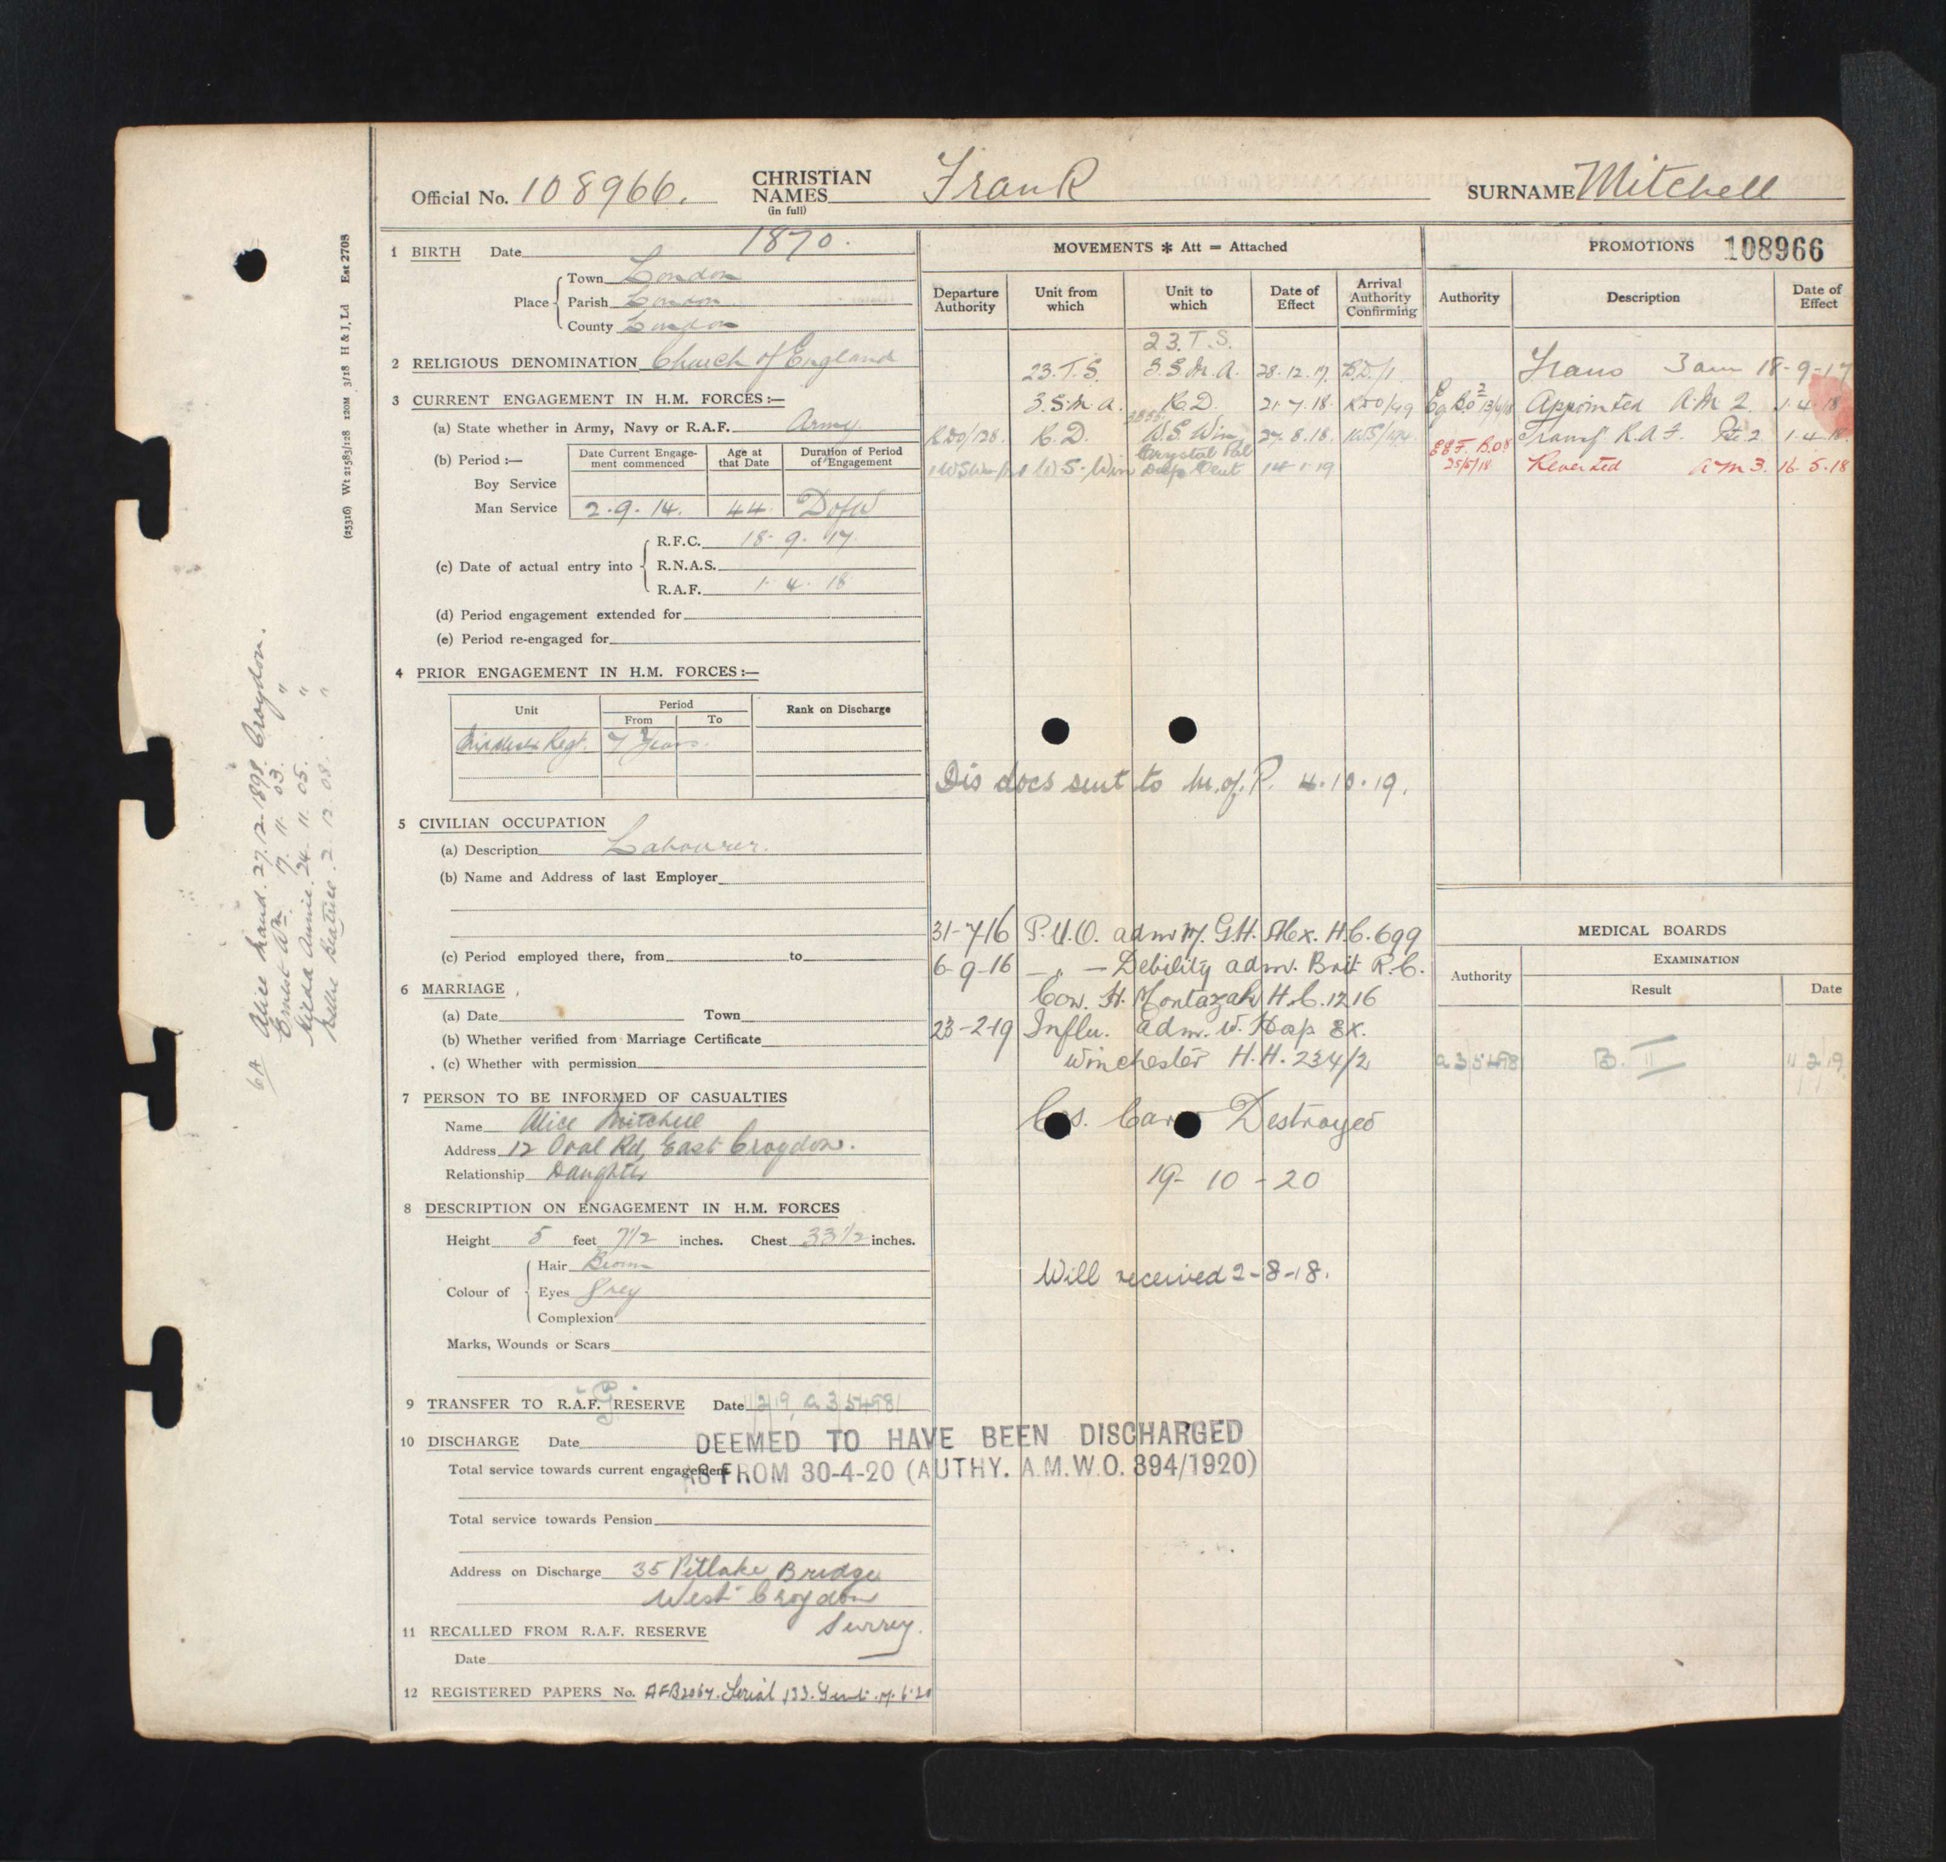 Official No. 108966. CHRISTIAN NAMES (in full) Frank SURNAME Mitchell
1 BIRTH Date 1870.
Place Town London
Parish London
County London
2 RELIGIOUS DENOMINATION Church of England
3 CURRENT ENGAGEMENT IN H.M. FORCES:—
(a) State whether in Army, Navy or R.A.F. Army
(b) Period:— Date Current Engagement commenced Age at that Date Duration of Period of Engagement
Boy Service
Man Service 2.9.14. 44 DofW
(c) Date of actual entry into R.F.C. 18-9-17.
R.N.A.S.
R.A.F. 1-4-18
(d) Period engagement extended for
(e) Period re-engaged for
4 PRIOR ENGAGEMENT IN H.M. FORCES:—
Unit Period From To Rank on Discharge
Regt. 7 Years.
5 CIVILIAN OCCUPATION
(a) Description Labourer.
(b) Name and Address of last Employer
(c) Period employed there, from to
6 MARRIAGE
(a) Date Town
(b) Whether verified from Marriage Certificate
(c) Whether with permission
7 PERSON TO BE INFORMED OF CASUALTIES
Name Alice Mitchell
Address 12 Oval Rd, East Croydon.
Relationship Daughter
8 DESCRIPTION ON ENGAGEMENT IN H.M. FORCES
Height 5 feet 7½ inches. Chest 33½ inches.
Colour of Hair Brown
Eyes Grey
Complexion
Marks, Wounds or Scars
9 TRANSFER TO R.A.F. G RESERVE Date
10 DISCHARGE Date
DEEMED TO HAVE BEEN DISCHARGED
Total service towards current engagement
AS FROM 30-4-20 (AUTHY. A.M.W.O. 894/1920)
Total service towards Pension
Address on Discharge 35 Pitlake Bridge
West Croydon
Surrey.
11 RECALLED FROM R.A.F. RESERVE
Date
12 REGISTERED PAPERS No. AFB2067. Serial 133.
MOVEMENTS * Att = Attached
Departure Authority Unit from which Unit to which Date of Effect Arrival Authority Confirming
23.T.S.
23.T.S. 3.S.M.A. 28.12.17.
3.S.M.A. R.D. 21.7.18.
R.D. W.S. Win 27.8.18.
W.S. Win Crystal Pal 14-1-19
Dis docs sent to M.of.P. 4.10.19.
31-7-16 P.U.O. adm 17. G.H. Alex. H.C. 699
6-9-16 — " — Debility adm. Brit R.C.
Con. H. Montazah H.C. 1216
23-2-19 Influ. adm. W. Hosp Ex.
Winchester H.H. 234/2
Cas. Card Destroyed
19-10-20
Will received 2-8-18.
PROMOTIONS 108966
Authority Description Date of Effect
Trans 3 am 18-9-17
Appointed A.M 2 1.4.18
Transf R.A.F. Pte 2 1.4.18.
25/5/18 Reverted AM 3. 16.5.18
MEDICAL BOARDS
EXAMINATION
Authority Result Date
B. II
6A Alice Maud. 27.12.1898. Croydon.
Ernest Wm 17. 11. 03. "
Hilda Annie. 24. 11. 05. "
Nellie Beatrice. 2 12 08. "
(25316) Wt 21583/128 120M 3/18 H & J, Ld Est 2708